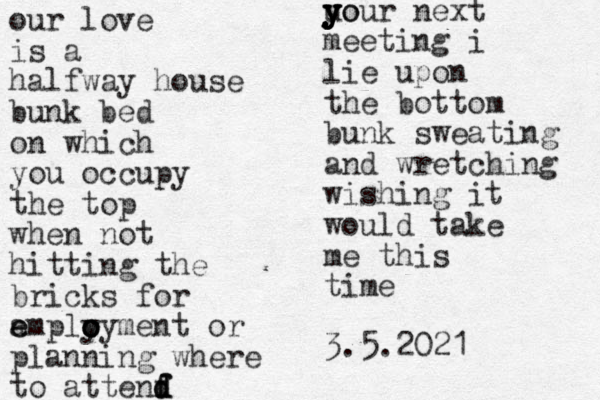 our love
is a
halfway house
bunk bed
on which
you occupy
the top
when not
hitting the
bricks for
employment or
planning where
to attend
your next
meeting i
lie upon
the bottom
bunk sweating
and wretching
wishing it
would take
me this
time
3.5.2021